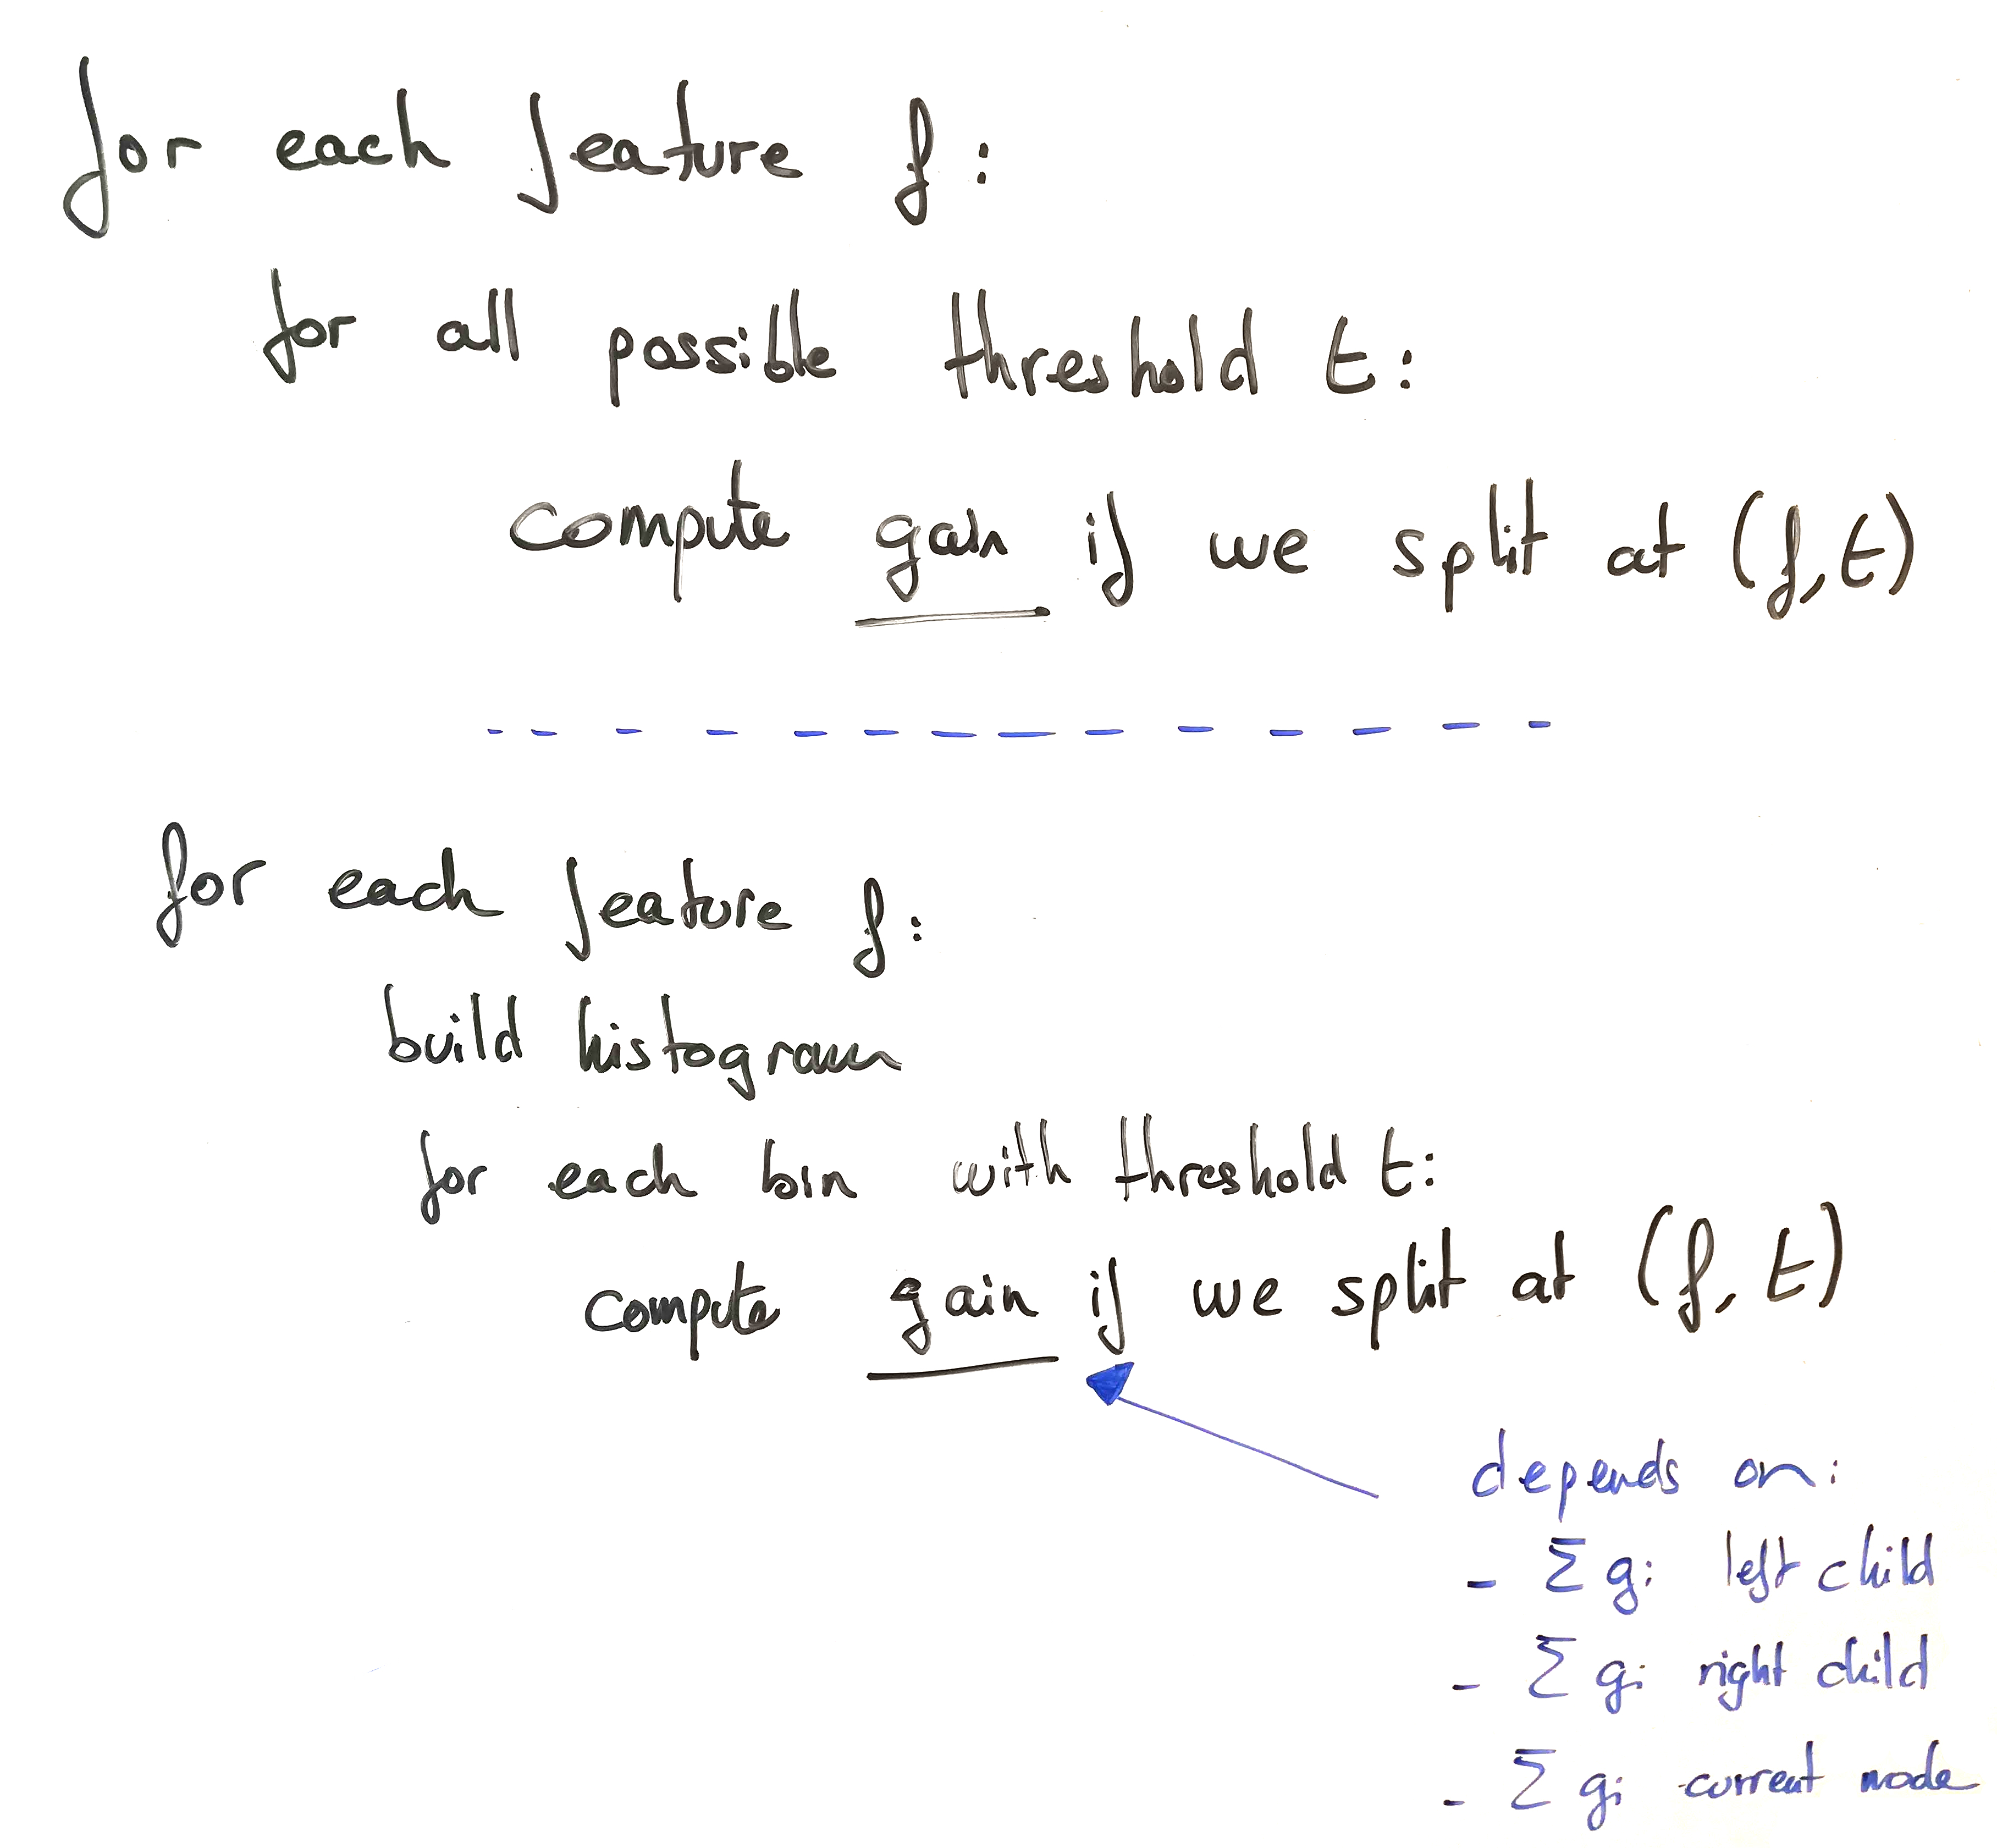 for each feature f:
for all possible threshold t:
compute gain if we split at (f,t)
for each feature f:
build histogram
for each bin with threshold t:
compute gain if we split at (f, t)
depends on:
- Σ gi left child
- Σ gi right child
- Σ gi current node